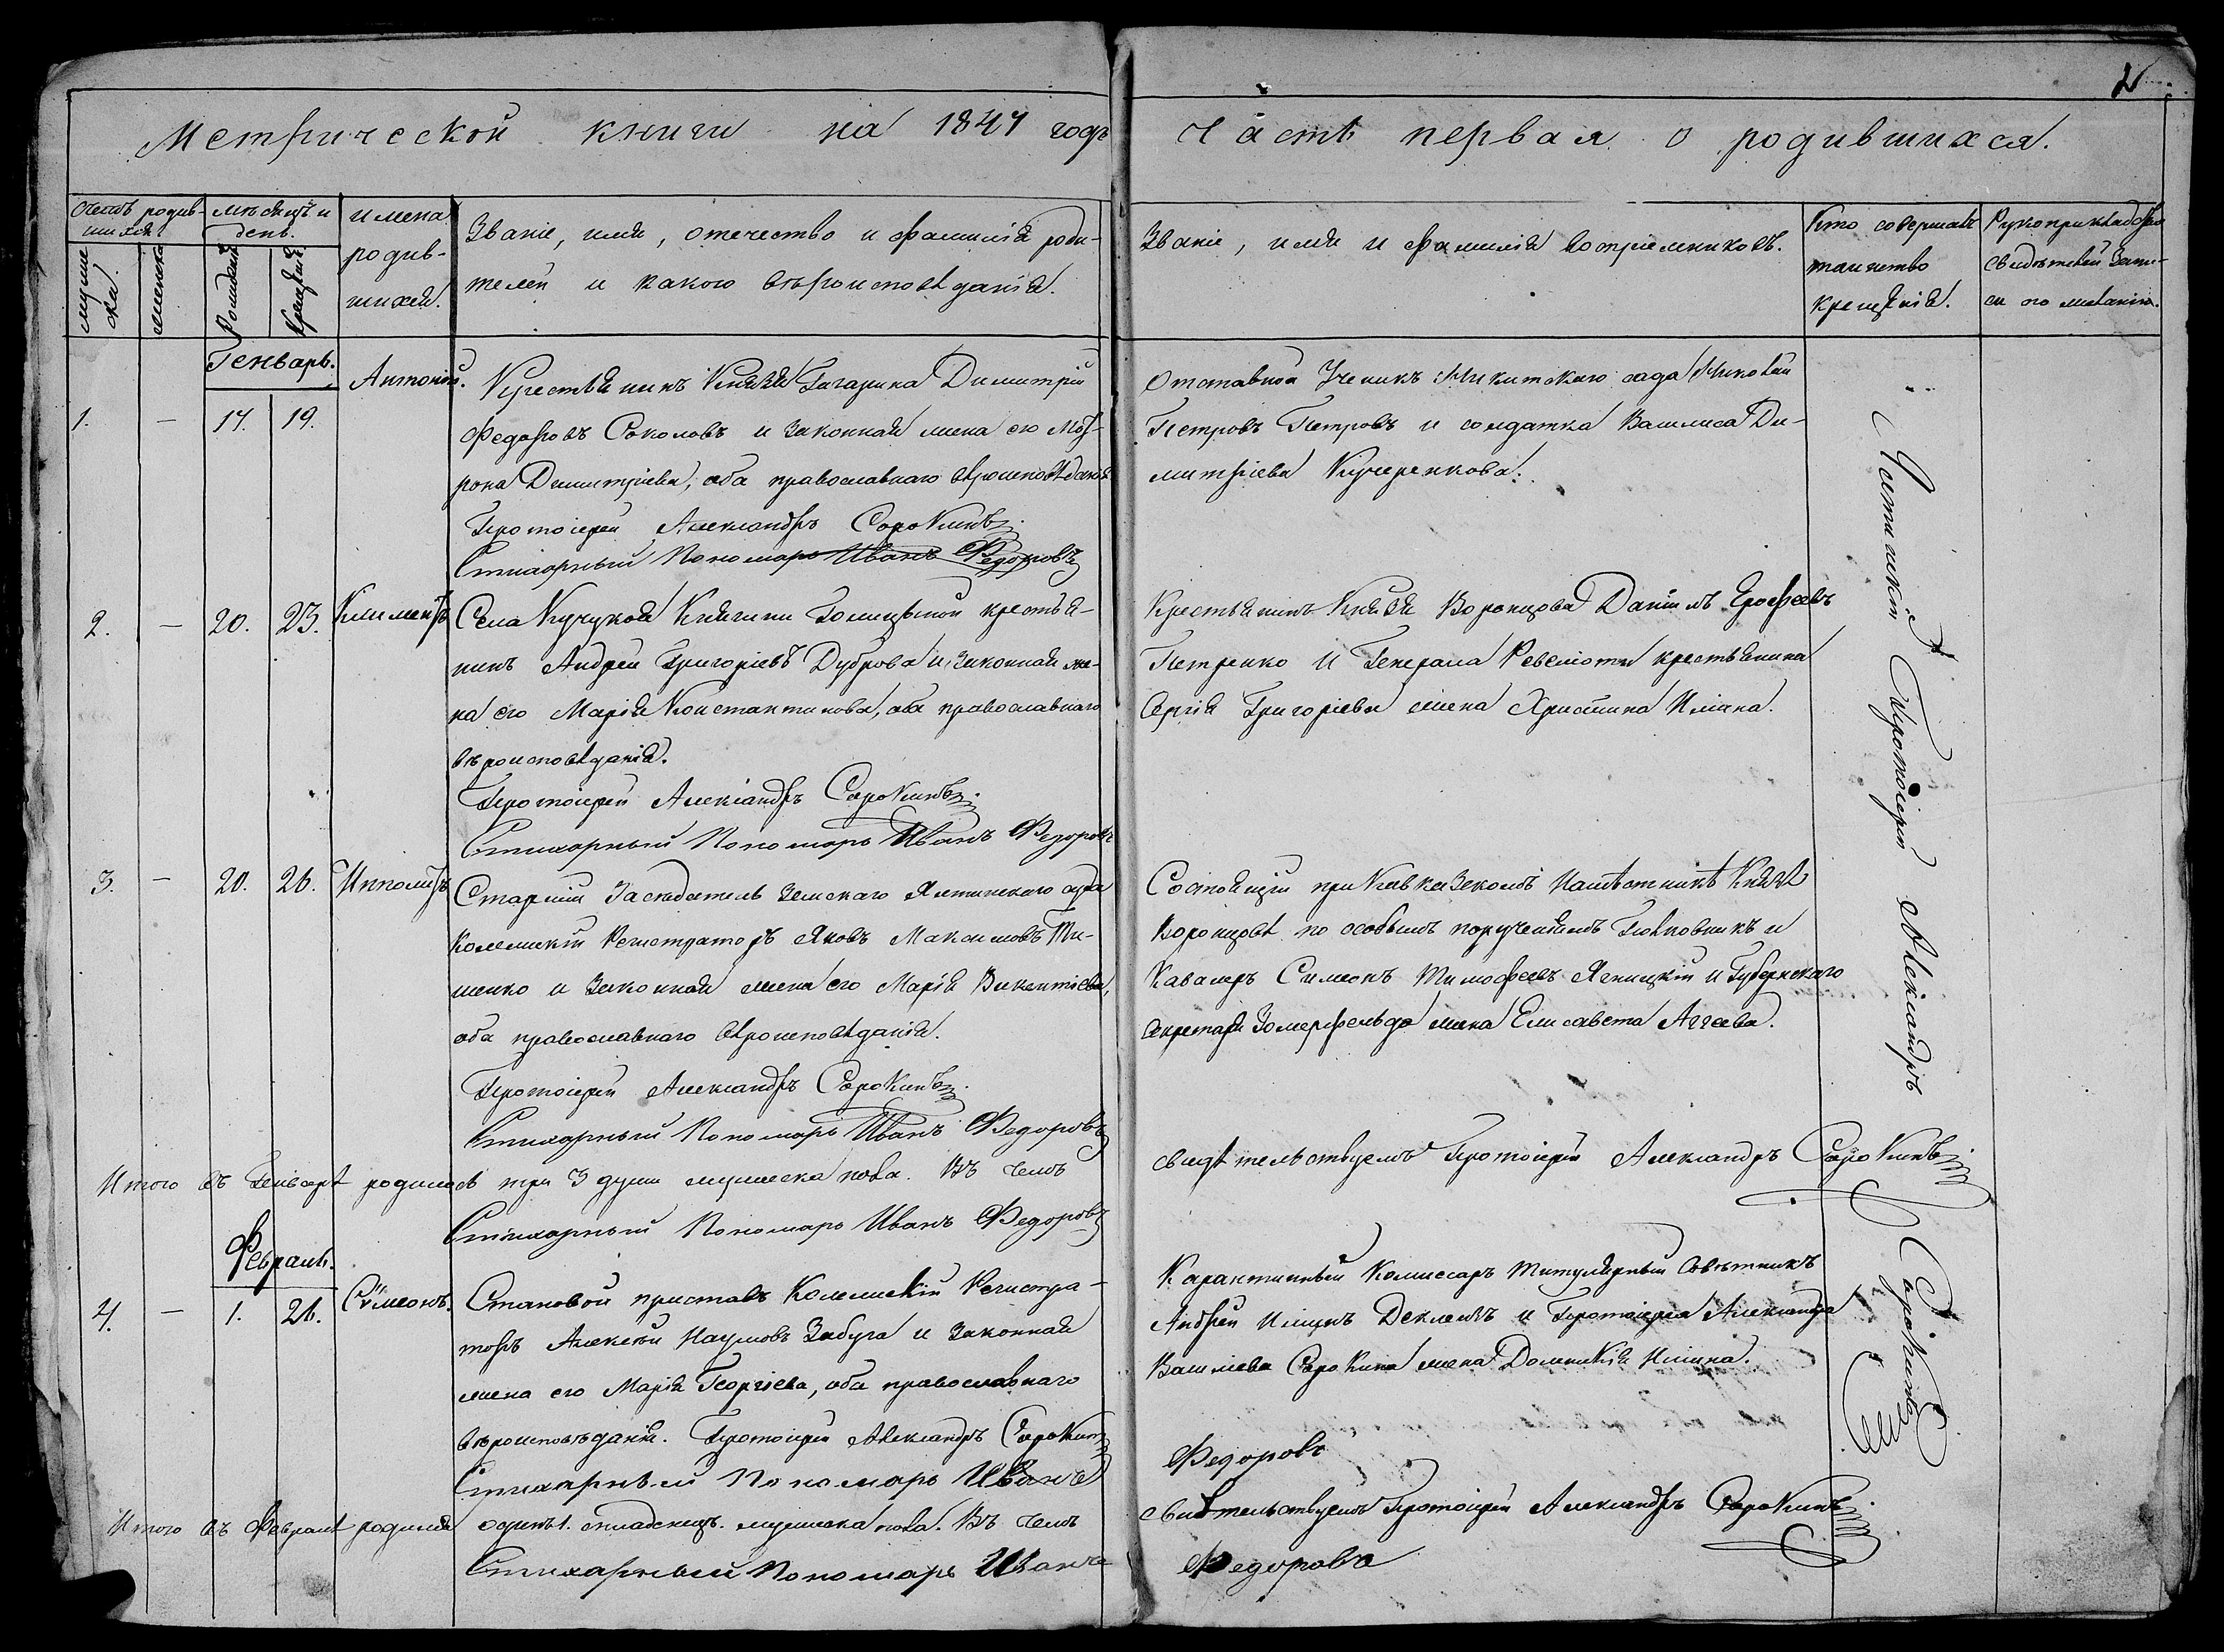 2
Метрической книги на 1847 годъ
Часть первая о родившихся.
Счетъ родив-
шихся.
мѣсяцъ и
день.
имена
родив-
шихся.
мужеска
женска
Рожденія
Крещенія
Званіе, имя, отечество и фамилія роди-
телей и какого вѣроисповѣданія.
Званіе, имя и фамилія воспріемниковъ.
Кто совершалъ
таинство
крещенія.
Рукоприкладство
свидѣтелей запи-
си по желанію.
Генварь.
1. — 17. 19. Антоній.
Крестьянинъ Князя Гагарина Димитрій
Федоровъ Соколовъ и законная жена его Мат-
рона Димитріева, оба православнаго вѣроисповѣданія
Протоіерей Александръ Сорокинъ
Стихарный Пономарь Иванъ Федоровъ
Отставной Ученикъ Никитскаго сада Николай
Петровъ Петровъ и солдатка Василиса Ди-
митріева Кучеренкова.
2. — 20. 23. Климентъ
Села Кучукоя Княгини Голицыной крестья-
нинъ Андрей Григоріевъ Дуброва и законная же-
на его Марія Константинова, оба православнаго
вѣроисповѣданія.
Протоіерей Александръ Сорокинъ
Стихарный Пономарь Иванъ Федоровъ
Крестьянинъ Князя Воронцова Даніилъ Ерофеевъ
Петренко и Генерала Ревеліоти крестьянина
Сергія Григоріева жена Христина Ильина.
3. — 20. 26. Ипполитъ
Старшій Засѣдатель Земскаго Ялтинскаго суда
Коллежскій Регистраторъ Яковъ Максимовъ Ти-
шенко и законная жена его Марія Викентіева,
оба православнаго вѣроисповѣданія.
Протоіерей Александръ Сорокинъ
Стихарный Пономарь Иванъ Федоровъ
Состоящій при Кавказскомъ Намѣстникѣ Князѣ
Воронцовѣ по особымъ порученіямъ Полковникъ и
Кавалеръ Симеонъ Тимофеевъ Ягницкій и Губернскаго
секретаря Зомерфельда жена Елисавета Аггеева.
Итого въ Генварѣ родилось три 3 души мужеска пола. Въ чемъ
свидѣтельствуемъ Протоіерей Александръ Сорокинъ
Стихарный Пономарь Иванъ Федоровъ
Февраль.
4. — 1. 21. Сѵмеонъ.
Становой приставъ Коллежскій Регистра-
торъ Алексѣй Наумовъ Забуга и законная
жена его Марія Георгіева, оба православнаго
вѣроисповѣданія. Протоіерей Александръ Сорокинъ
Стихарный Пономарь Иванъ
Федоровъ
Карантинный Комиссаръ Титулярный Совѣтникъ
Андрей Ильинъ Деклевъ и Протоіерея Александра
Васильева Сорокина жена Домникія Ильина.
Итого въ Февралѣ родился одинъ 1. младенецъ. мужеска пола. Въ чемъ
свидѣтельствуемъ Протоіерей Александръ Сорокинъ
Стихарный Пономарь Иванъ
Федоровъ
Протоіерей Александръ Сорокинъ